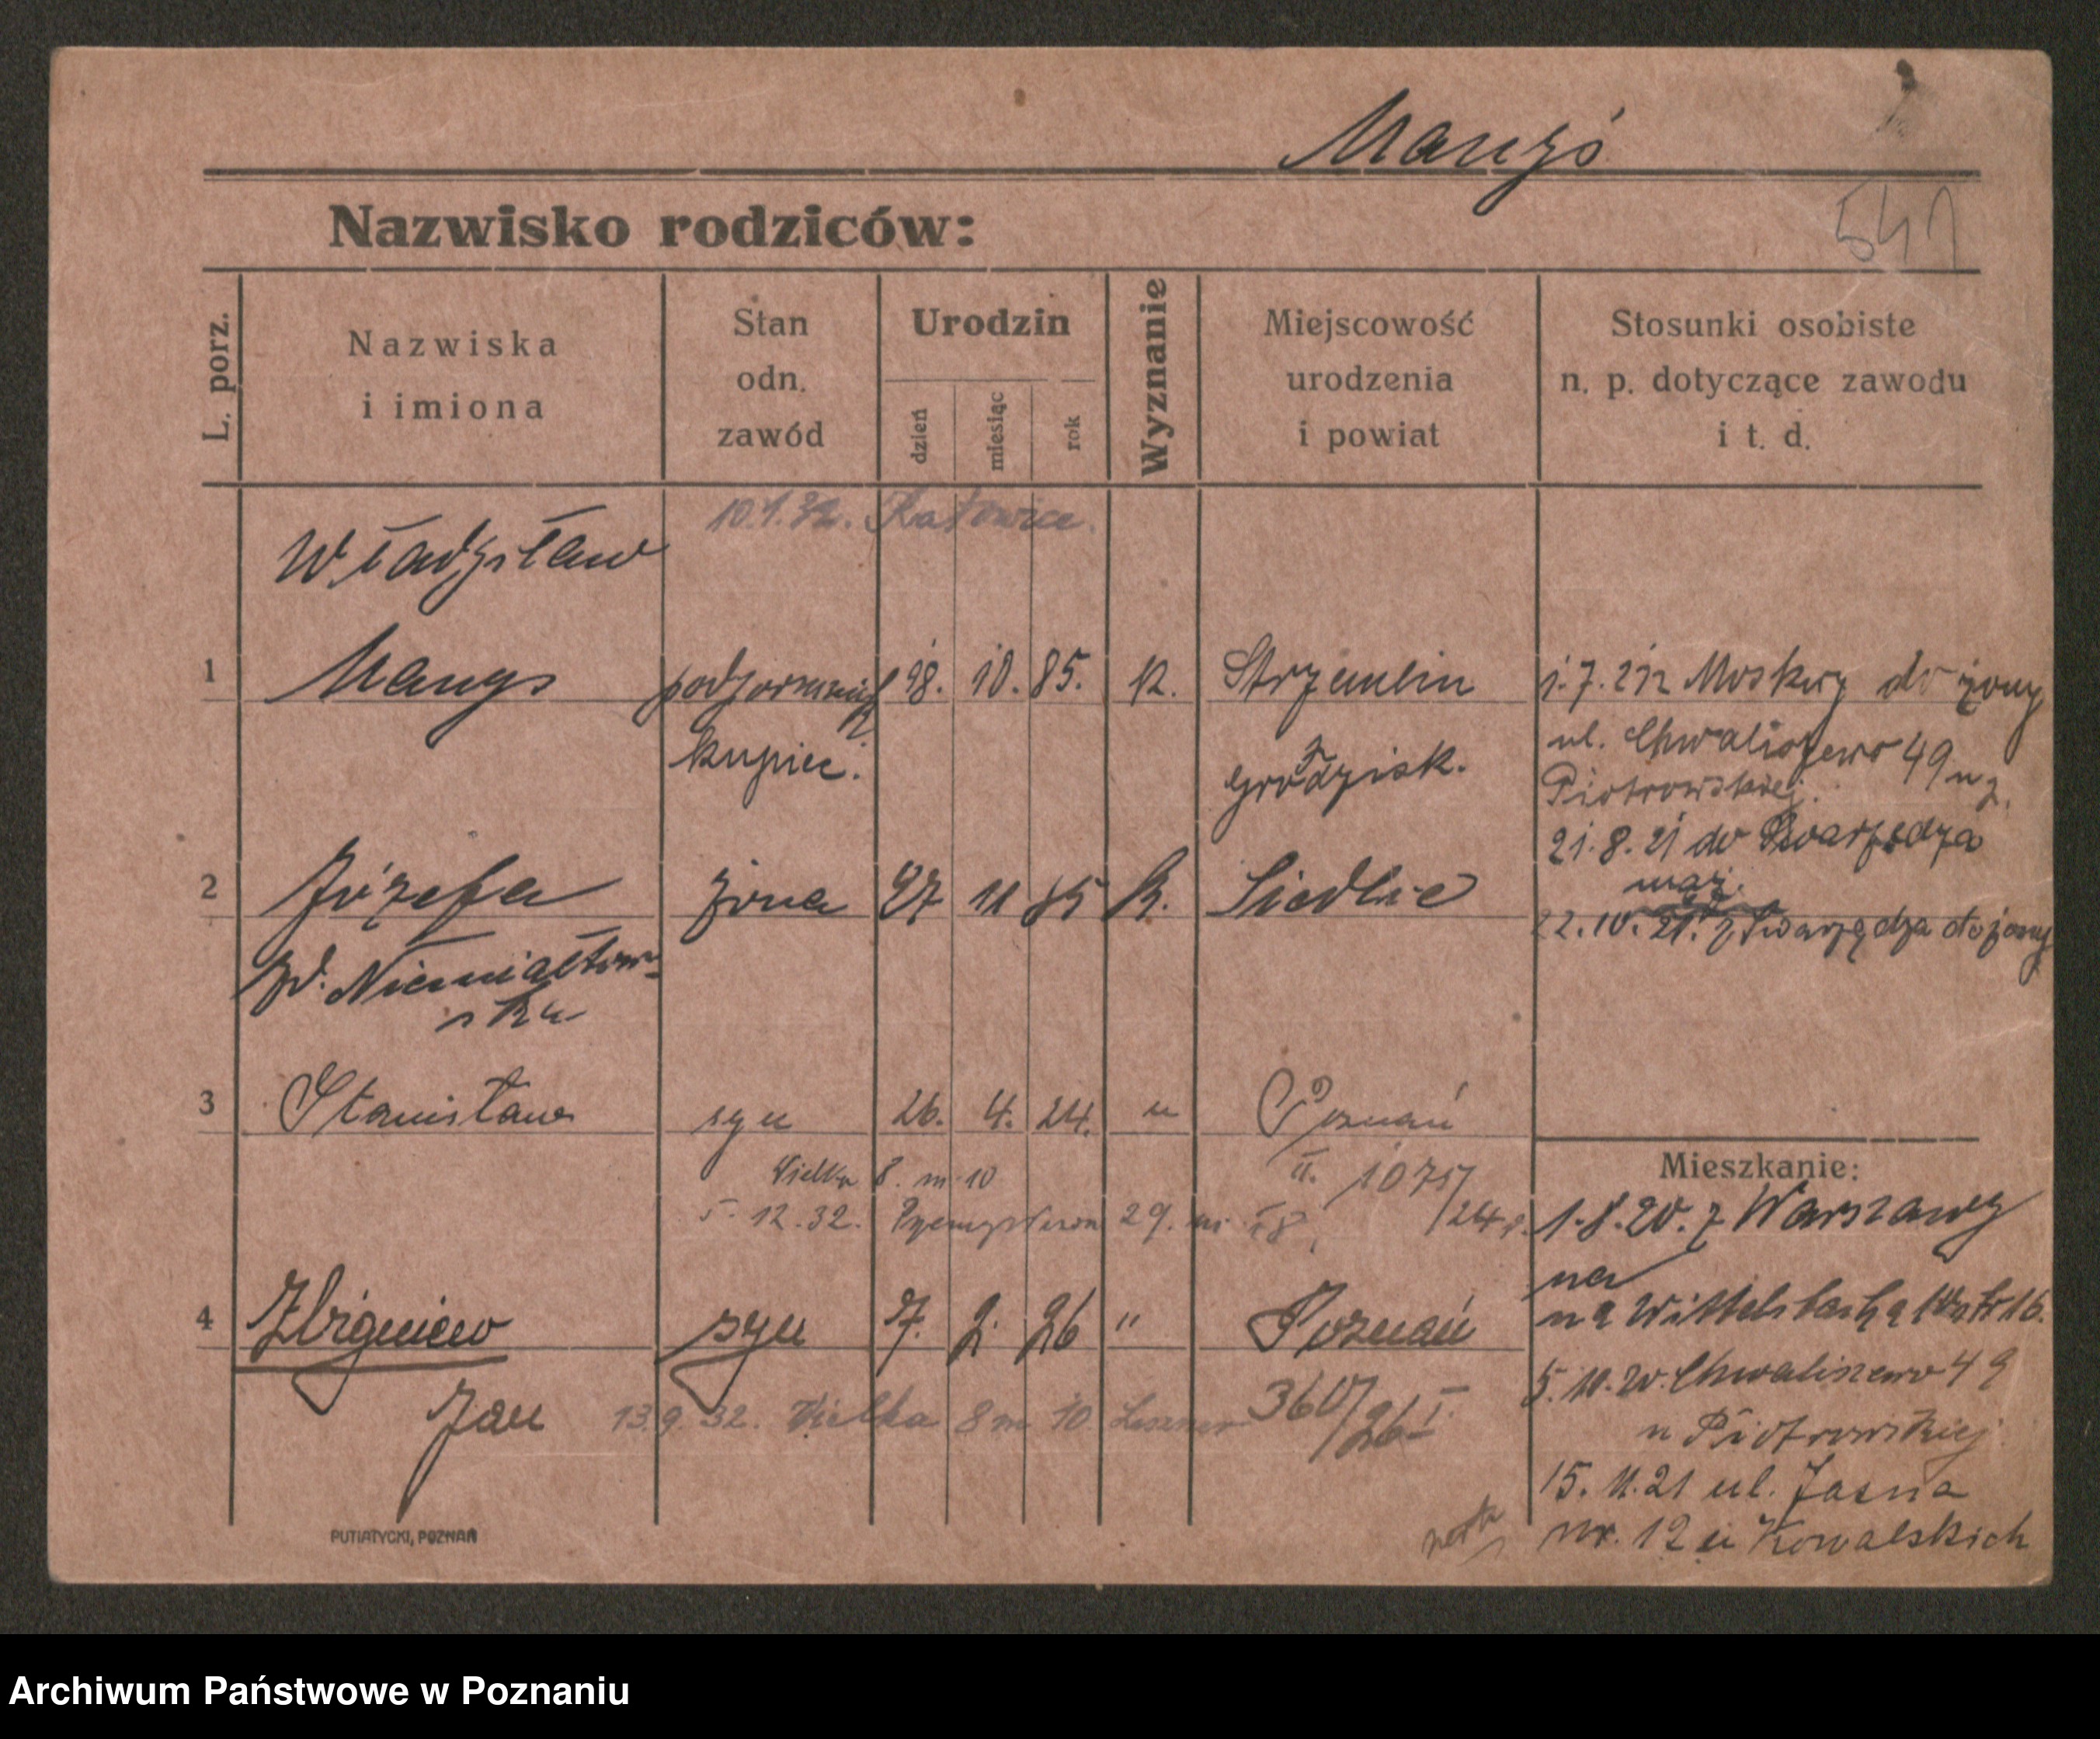 Manyś
541
Nazwisko rodziców:
L. porz.
Nazwiska
i imiona
Stan
odn.
zawód
Urodzin
dzień
miesiąc
rok
Wyznanie
Miejscowość
urodzenia
i powiat
Stosunki osobiste
n. p. dotyczące zawodu
i t. d.
10.1.32. Katowice.
Władysław
1 Manys 10. 85. K. Strzemlin
kupiec. Grodzisk.
1.7.21 z Moskwy do żony
ul. Chwaliszewo 49
Piotrowskiej.
21.8.21 do Swarzędza
mąż.
22.10.21. z Swarzędza do żony
2 Józefa żona 27 11 85 K. Siedlce
zd. Niemiałtow-
ska
3 Stanisław syn 26. 4. 24. " Poznań
Wielka 8. m. 10 II. 1075/
5.12.32. 29. m. 18, /24
Mieszkanie:
1.8.20. z Warszawy
na
na 16.
4 Zbigniew syn 7. 2. 26 " Poznań
Jan 13.9.32. Wielka 8 m 10. 360/26 I.
5.10.20. Chwaliszewo 49
u Piotrowskiej
15.11.21 ul. Jasna
nr. 12 u Kowalskich
PUTIATYCKI, POZNAŃ
Archiwum Państwowe w Poznaniu